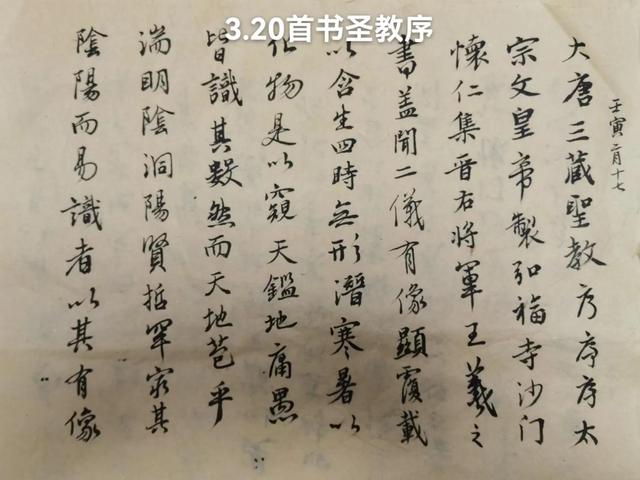 3.20首书圣教序
壬寅二月十七
大唐三藏聖教序序序太
宗文皇帝製弘福寺沙门
懷仁集晋右將軍王羲之
書盖聞二儀有像顯覆載
以含生四時無形潛寒暑以
化物是以窺天鑑地庸愚
皆識其數然而天地苞乎
湍明陰洞陽賢哲罕窮其
陰陽而易識者以其有像